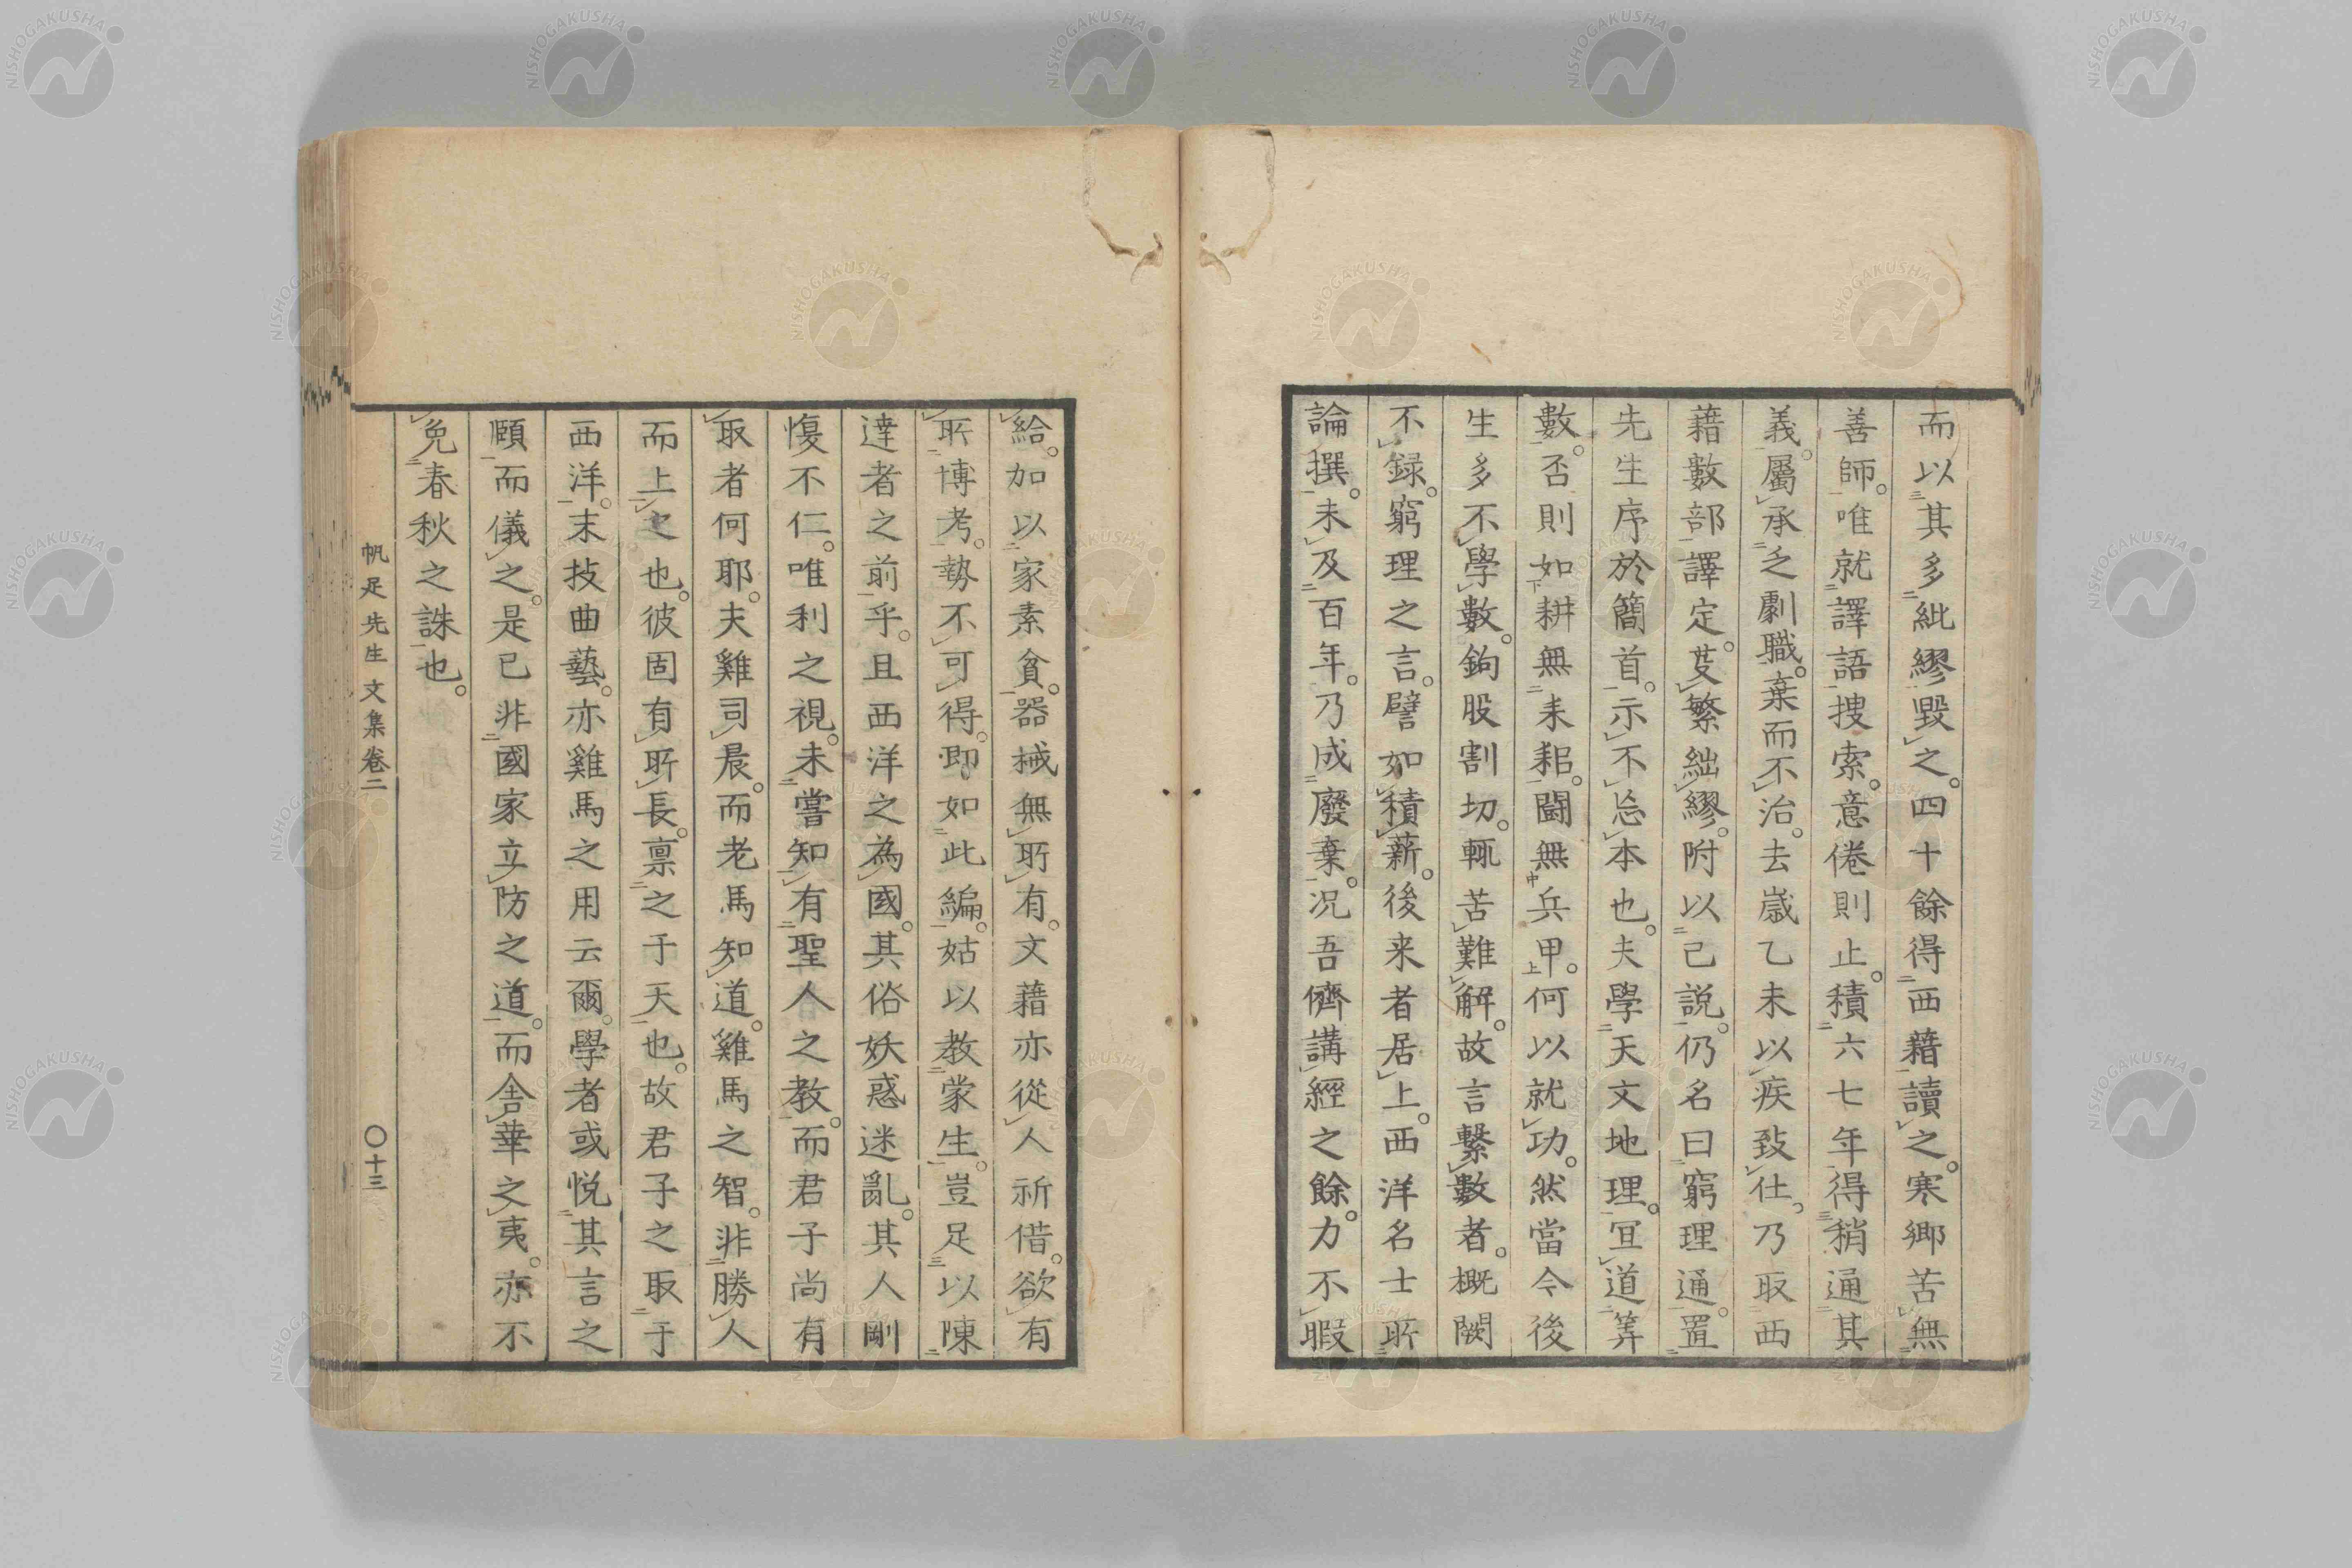 而以其多紕繆毀之。四十餘得西藉讀之。寒鄉苦無
善師。唯就譯語捜索。意倦則止。積六七年得稍通其
義。屬承乏劇職。棄而不治。去歳乙未以疾致仕。乃取西
藉數部譯定。芟繁絀繆。附以己説。仍名曰窮理通。置
先生序於簡首。示不忘本也。夫學天文地理。冝道筭
數。否則如耕無耒耜。鬪無兵甲。何以就功。然當今後
生多不學數。鉤股割切。輒苦難解。故言繫數者。概闕
不録。窮理之言。譬如積薪。後来者居上。西洋名士所
論撰。未及百年。乃成廢棄。况吾儕講經之餘力不暇
給。加以家素貧。器械無所有。文藉亦從人祈借。欲有
所博考。勢不可得。即如此編。姑以教蒙生。豈足以陳
達者之前乎。且西洋之為國。其俗妖惑迷亂。其人剛
愎不仁。唯利之視。未嘗知有聖人之教。而君子尚有
取者何耶。夫雞司晨。而老馬知道。雞馬之智。非勝人
而上之也。彼固有所長。禀之于天也。故君子之取于
西洋。末技曲藝。亦雞馬之用云爾。學者或悦其言之
頤而儀之。是已非國家立防之道。而舎華之夷。亦不
免春秋之誅也。
帆足先生文集卷二
〇十三
NISHOGAKUSHA